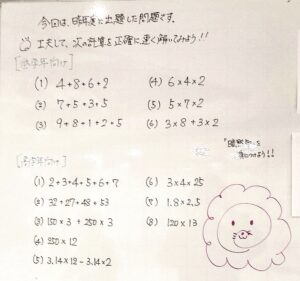 今回は、昨年度に出題した問題です。
工夫して、次の計算を正確に速く解いてみよう!!
[低学年向け]
(1) 4+8+6+2
(2) 7+5+3+5
(3) 9+8+1+2+5
(4) 6×4×2
(5) 5×7×2
(6) 3×8+3×2
[高学年向け]
(1) 2+3+4+5+6+7
(2) 32+27+48+53
(3) 150×3+250×3
(4) 250×12
(5) 3.14×12-3.14×2
(6) 3×4×25
(7) 1.8×2.5
(8) 120×13